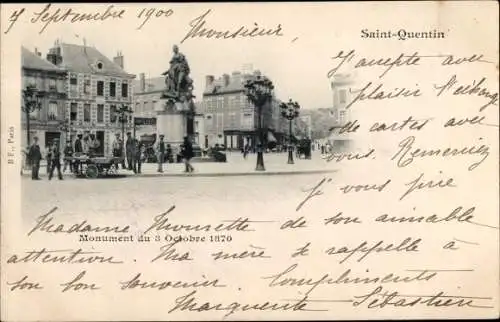 7 Septembre 1900
Monsieur
Saint-Quentin
J'accepte avec
plaisir l'échange
de cartes avec
vous. Remerciez
je vous prie
Madame Mousette de son aimable
Monument du 8 Octobre 1870
attention. Ma mère se rappelle à
son bon souvenir Compliments
Marguerite Sébastien
B F, Paris